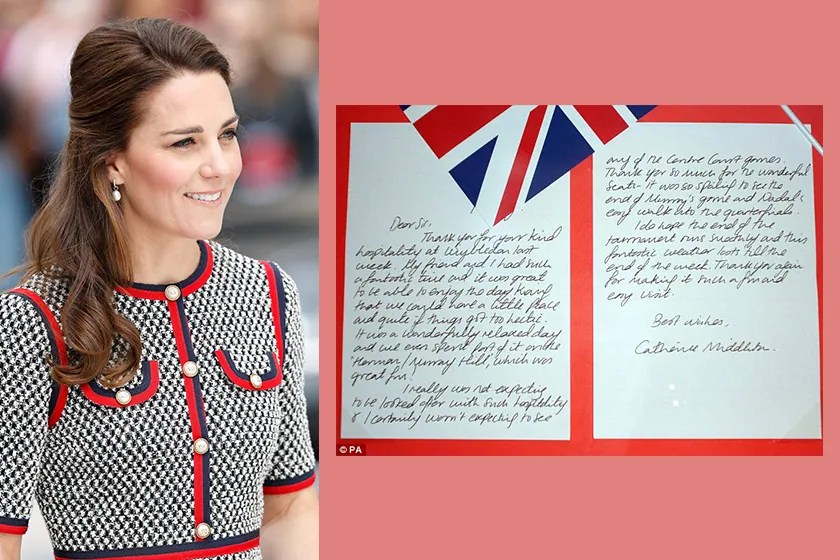 Dear Sir,
Thank you for your kind
hospitality at Wimbledon last
week. My friend and I had such
a fantastic time and it was great
to be able to enjoy the day knowing
that we could have a little peace
and quite if things got to hectic.
It was a wonderfully relaxed day
and we even spent part of it on the
'Henman / Murray Hill', which was
great fun.
I really was not expecting
to be looked after with such hospitality
& I certainly wasn't expecting to see
© PA
any of the Centre Court games.
Thank you so much for the wonderful
seats - it was so exciting to see the
end of Murray's game and Nadal's
easy walk into the quarterfinals.
I do hope the end of the
tournament runs smoothly and this
fantastic weather lasts till the
end of the week. Thank you again
for making it such a fun and
easy visit.
Best wishes,
Catherine Middleton.